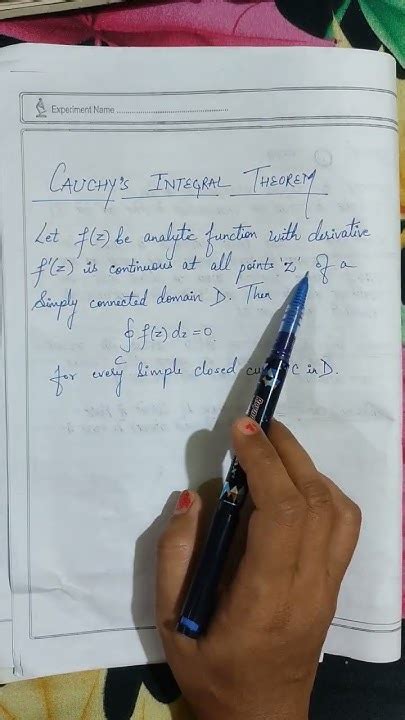 Experiment Name
CAUCHY'S INTEGRAL THEOREM
Let f(z) be analytic function with derivative
f'(z) is continuous at all points 'z' of a
Simply connected domain D. Then
∮ f(z) dz = 0
C
for every Simple closed C in D.